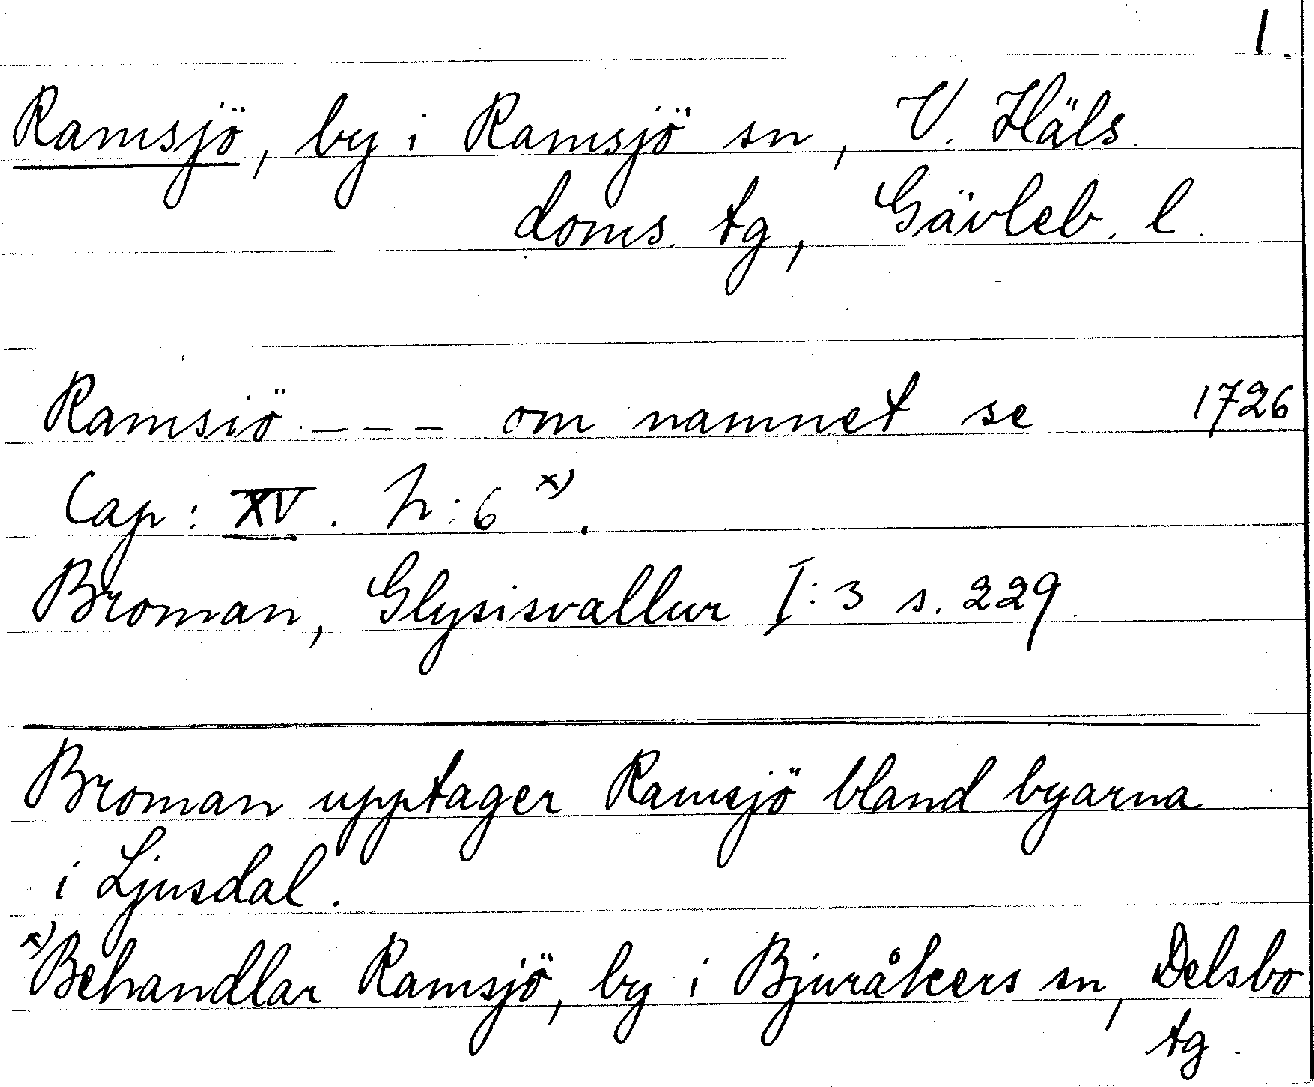 1.
Ramsjö, by i Ramsjö sn, V. Häls.
doms. tg, Gävleb. l.
Ramsiö --- om namnet se 1726
Cap: XV. h:6 x).
Broman, Glysisvallur I:3 s. 229
Broman upptager Ramsjö bland byarna
i Ljusdal.
x) Behandlar Ramsjö, by i Bjuråkers sn, Delsbo
tg.